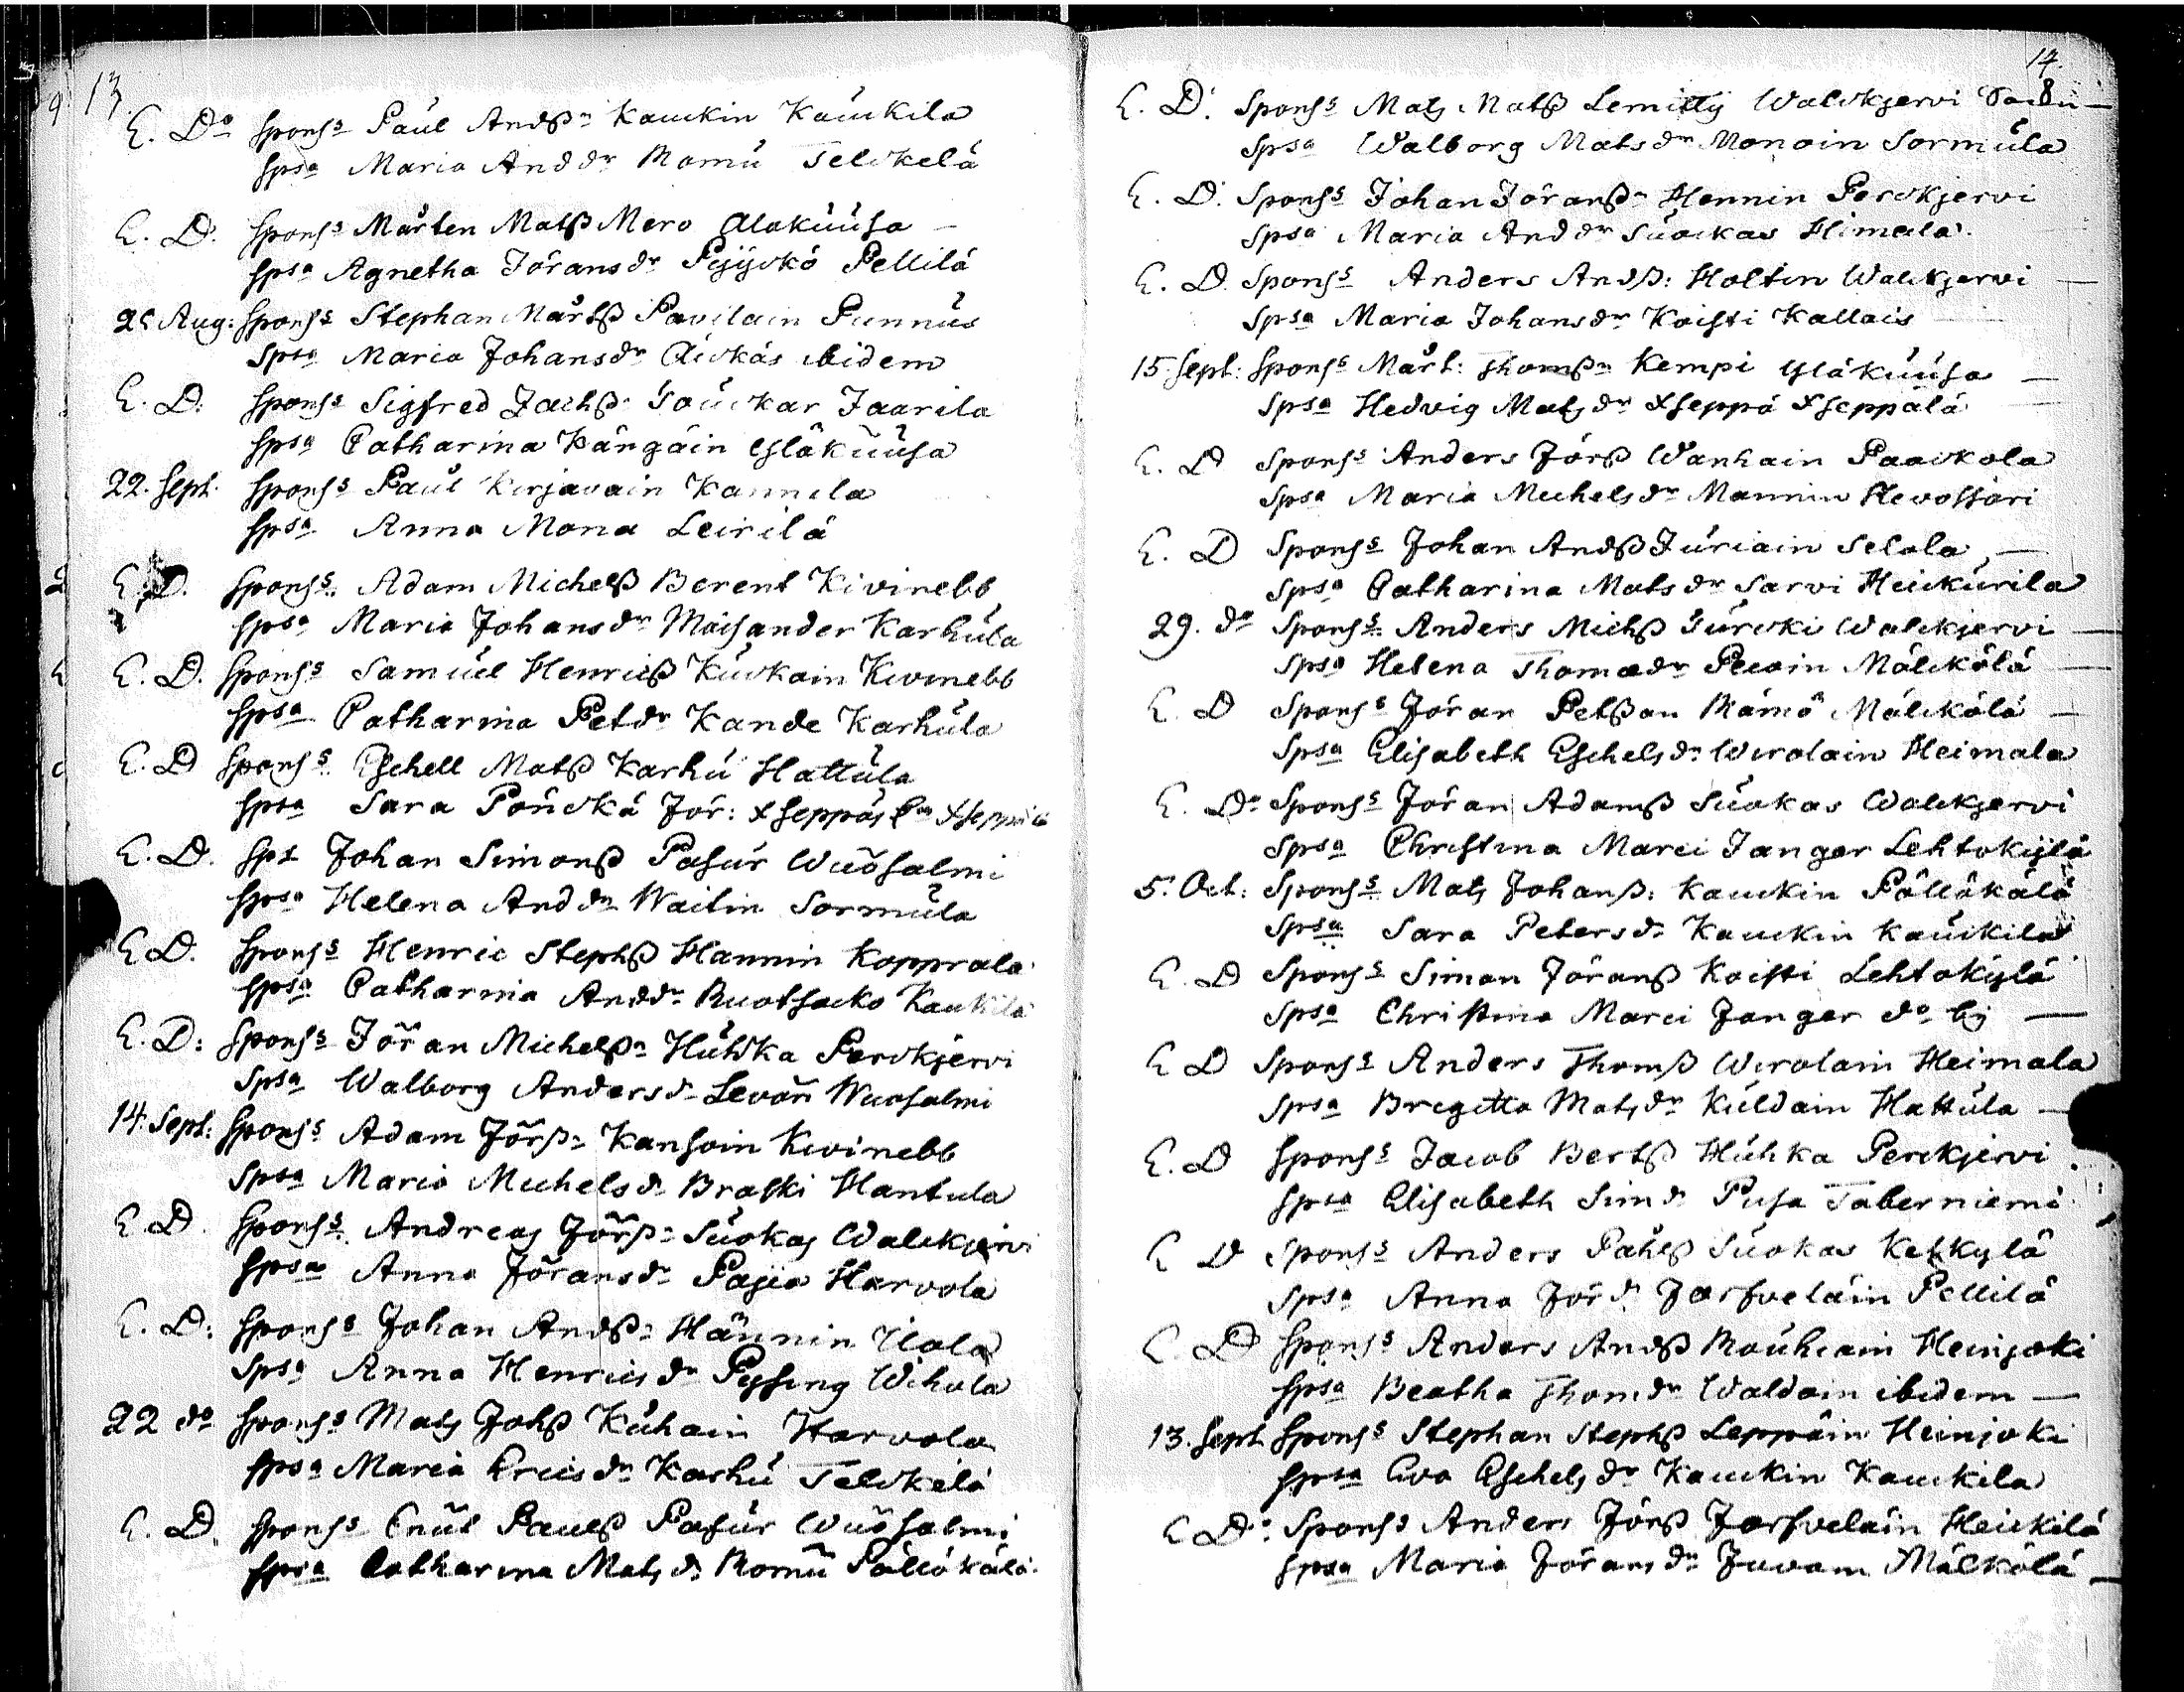 13.
E. Do Sponss Paul Andßn Kauckin Kauckila
Spsa Maria And dr Romu Telckelä
E. D. Sponss Mårten Matß Mero Alakuusa
Spsa Agnetha Jörans dr Pyyckö Pellilä
Aug: Sponss Stephan Mårtß Pavilain Punnus
Spsa Maria Johans dr Äickäs ibidem
E. D. Sponss Sigfred Jachß Souckar Jaarila
Spsa Catharina Kängäin Yläkuusa
22. Sept. Sponss Paul Kirjavain Kannila
Spsa Anna Mona Leirilä
E. D. Sponss Adam Michelß Berent Kivinebb
Spsa Maria Johans dr Maisander Karhula
E. D. Sponss Samuel Henricß Kuckain Kivinebb
Spsa Catharina Pet dr Kande Karhula
E. D Sponss Eschell Matß Karhu Hattula
Spsa Sara Pönckä Jör: Xseppäs
E. D. Sps Johan Simonß Pasur Wuosalmi
Spsa Helena And dr Naitin Sormula
E D. Sponss Henric Stephß Hannin Kopprala
Spsa Catharina And dr Ruotsacko Kaukila
E. D: Sponss Jöran Michelßn Huhka Perckjervi
Spsa Walborg Anders dr Levon Wuosalmi
14. Sept: Sponss Adam Jörßn Kansoin Kivinebb
Spsa Maria Michels dr Braski Hantula
E D. Sponss Andreas Jörßn Suokas Walckjervi
Spsa Anna Jörans dr Pajia Harvola
E. D: Sponss Johan Andßn Hännin Ilola
Spsa Anna Henrics dr Pysing Wihola
22 do Sponss Mats Johß Kuhain Harvola
Spsa Maria Erics dr Karhu Telckelä
E. D. Sponss Cnut Paulß Pasur Wuosalmi
Spsa Catharina Mats dr Romu Pölläkälä
14.
E. D. Sponss Mats Matß Lemitty Walckjervi
Spsa Walborg Mats dr Monoin Sormula
E. D. Sponss Johan Jöranßn Hennin Perckjervi
Spsa Maria And dr Suockas Himala
E. D. Sponss Anders Andß: Holtin Walckjervi
Spsa Maria Johans dr Koisti Kallois
15. Sept: Sponss Mårt: Thomßn Kempi Yläkuusa
Spsa Hedvig Mats dr Xseppä Xseppälä
E. D Sponss Anders Jörß Wanhain Paackola
Spsa Maria Michels dr Mannin Hevossari
E. D Sponss Johan Andß Juriain Selola
Spsa Catharina Mats dr Sarvi Heickurila
29. do Sponss Anders Michß Turcki Walckjervi
Spsa Helena Thomæ dr Pecoin Mälckölä
E. D Sponss Jöran Petßon Rämö Mälckölä
Spsa Elisabeth Eschels dr Wirolain Heimala
E. Do Sponss Jöran Adamß Suokas Walckjervi
Spsa Christina Marci Janger Lehtokylä
5. Oct: Sponss Mats Johanß: Kauckin Pölläkälä
Spsa Sara Peters dr Kauckin Kauckila
E. D Sponss Simon Jöranß Koisti Lehtokylä
Spsa Christina Marci Janger do by
E D Sponss Anders Thomß Wirolain Heimala
Spsa Bregitta Mats dr Kuldain Hattula
E. D Sponss Jacob Bertß Huhka Perckjervi
Spsa Elisabeth Sim dr Pusa Taberniemi
E D Sponss Anders Påhlß Suokas Keskylä
Spsa Anna Jör dr Jerfveläin Pellilä
E. D Sponss Anders Andß Rouhiain Heinjoki
Spsa Beatha Thom dr Waldoin ibidem
13. Sept Sponss Stephan Stephß Leppäin Heinjoki
Spsa Eva Eschels dr Kauckin Kauckila
E Do Sponss Anders Jörß Jerfveläin Heickilä
Spsa Maria Jörans dr Juvain Mälkölä